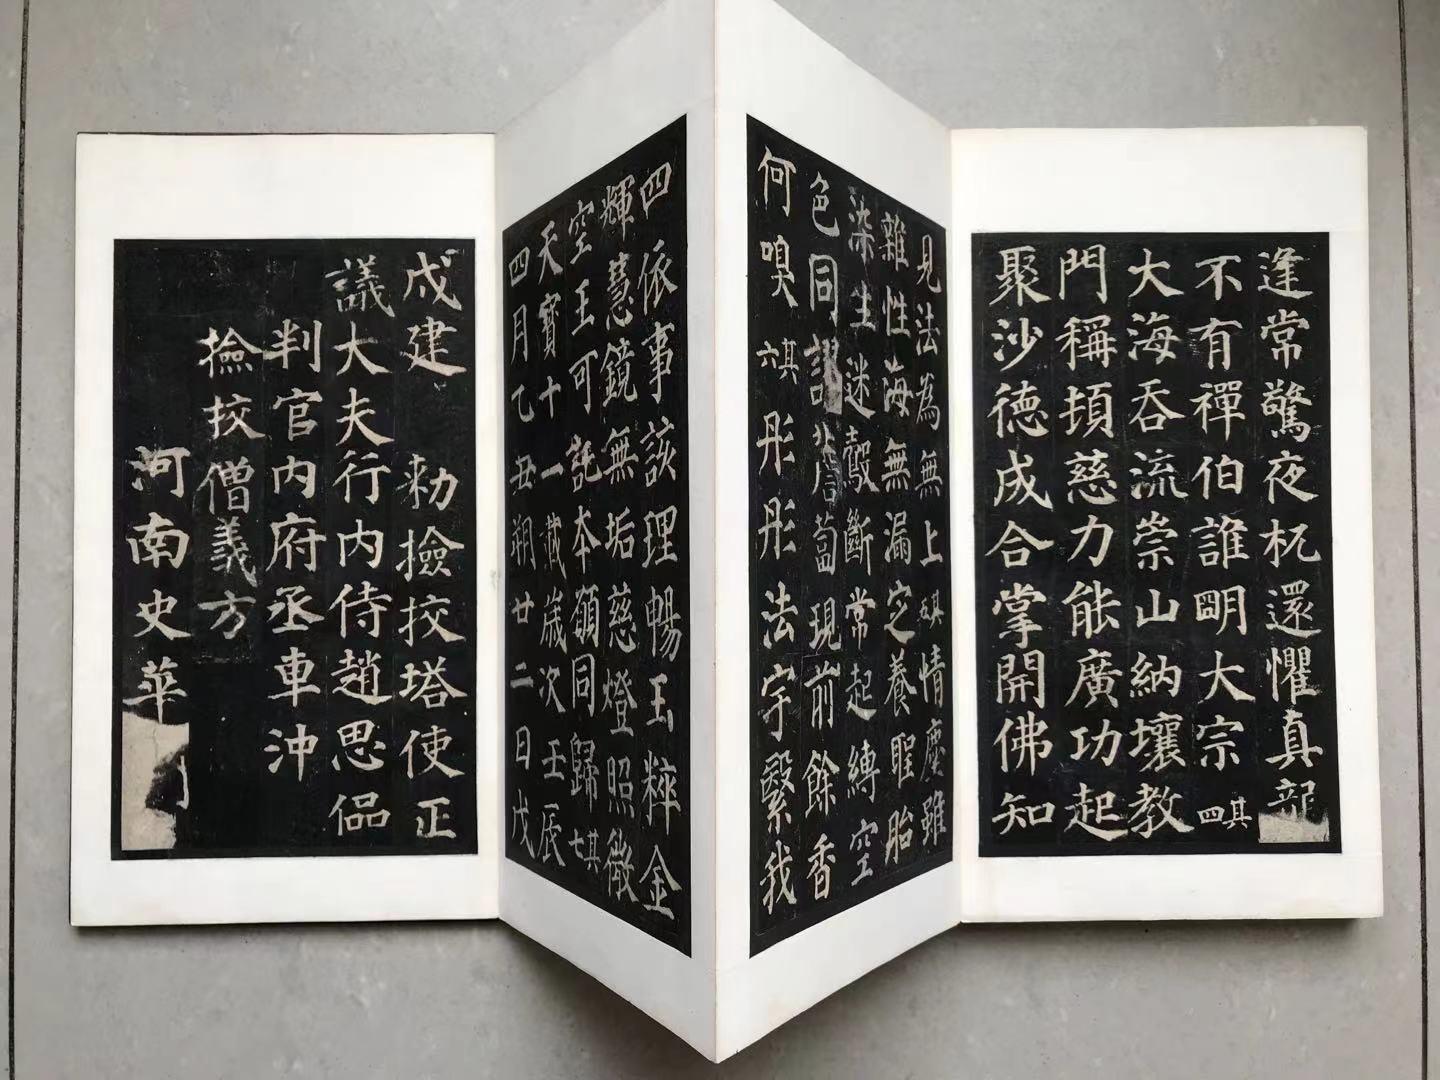 逢常驚夜枕還懼真
不有禪伯誰明大宗其四
大海吞流崇山納壤教
門稱頓慈力能廣功起
聚沙德成合掌開佛知
見法為無上其五情塵雖
雜性海無漏定養聖胎
染生迷鷇斷常起縛空
色同謬薝蔔現前餘香
何嗅其六彤彤法宇繫我
四依事該理暢玉粹金
輝慧鏡無垢慈燈照微
空王可託本願同歸其七
天寶十一載歲次壬辰
四月乙丑朔廿二日戊
戌建 勑撿挍塔使正
議大夫行內侍趙思偘
判官內府丞車沖
撿挍僧義方
河南史華